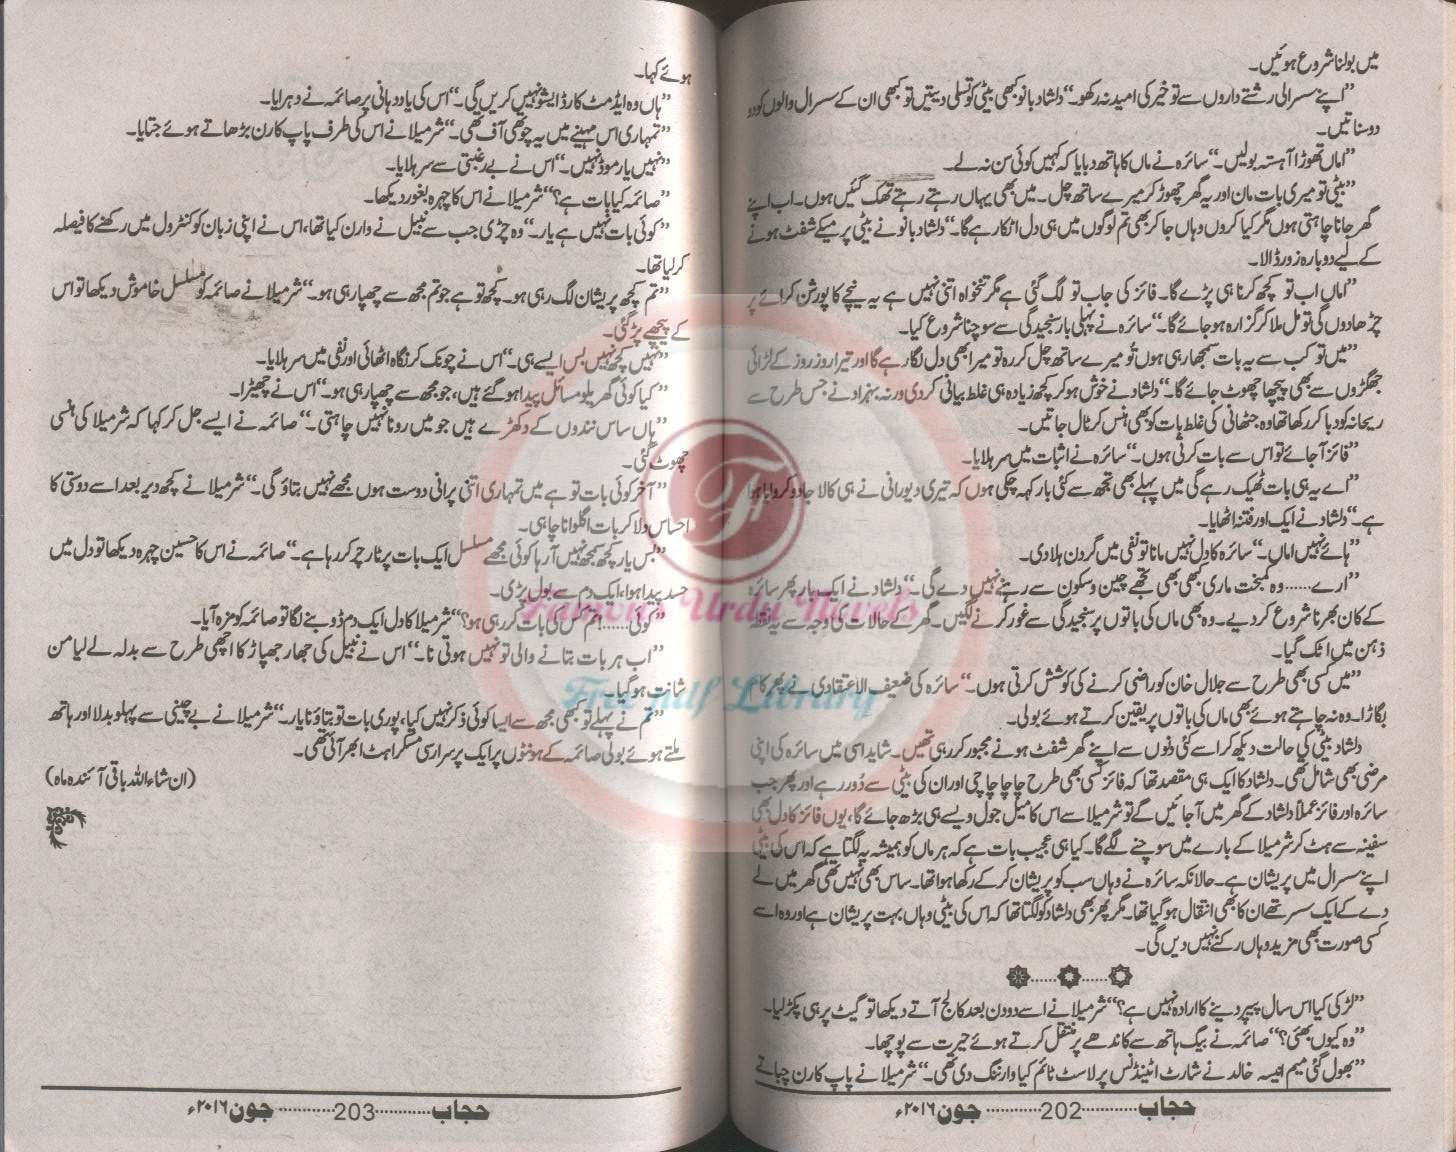 میں بولنا شروع ہوئیں۔
”اپنے سسرالی رشتے داروں سے تو خیر کی امید نہ رکھو۔“ دلشاد بانو کبھی بیٹی کو تسلی دیتیں تو کبھی ان کے سسرال والوں کو دو
دو سناتیں۔
”اماں تھوڑا آہستہ بولیں۔“ سائرہ نے ماں کا ہاتھ دبایا کہ کہیں کوئی سن نہ لے۔
”بیٹی تو میری بات مان اور یہ گھر چھوڑ کر میرے ساتھ چل۔ میں بھی یہاں رہتے رہتے تھک گئیں ہوں۔ اب اپنے
گھر جانا چاہتی ہوں مگر کیا کروں وہاں جا کر بھی تم لوگوں میں ہی دل اٹکا رہے گا۔“ دلشاد بانو نے بیٹی پر میکے شفٹ ہونے
کے لیے دوبارہ زور ڈالا۔
”اماں اب تو کچھ کرنا ہی پڑے گا۔ فائز کی جاب تو لگ گئی ہے مگر تنخواہ اتنی نہیں ہے یہ نیچے کا پورشن کرائے پر
چڑھا دوں گی تو مل ملا کر گزارہ ہو جائے گا۔“ سائرہ نے پہلی بار سنجیدگی سے سوچنا شروع کیا۔
”میں تو کب سے یہ بات سمجھا رہی ہوں تُو میرے ساتھ چل کر رہ تو میرا بھی دل لگا رہے گا اور تیرا روز روز کے لڑائی
جھگڑوں سے بھی پیچھا چھوٹ جائے گا۔“ دلشاد نے خوش ہو کر کچھ زیادہ ہی غلط بیانی کردی ورنہ بہزاد نے جس طرح سے
ریحانہ کو دبا کر رکھا تھا وہ جٹھانی کی غلط بات کو بھی ہنس کر ٹال جاتیں۔
”فائز آ جائے تو اس سے بات کرتی ہوں۔“ سائرہ نے اثبات میں سر ہلایا۔
”اے یہ ہی بات ٹھیک رہے گی میں پہلے بھی تجھ سے کئی بار کہہ چکی ہوں کہ تیری دیورانی نے ہی کالا جادو کروایا ہوا
ہے۔“ دلشاد نے ایک اور فتنہ اٹھایا۔
”ہائے نہیں اماں۔“ سائرہ کا دل نہیں مانا تو نفی میں گردن ہلا دی۔
”ارے...... وہ کمبخت ماری کبھی بھی تجھے چین و سکون سے رہنے نہیں دے گی۔“ دلشاد نے ایک بار پھر سائرہ
کے کان بھرنا شروع کر دیے۔ وہ بھی ماں کی باتوں پر سنجیدگی سے غور کرنے لگیں۔ گھر کے حالات کی وجہ سے یہ نقطہ
ذہن میں اٹک گیا۔
”میں کسی بھی طرح سے جلال خان کو راضی کرنے کی کوشش کرتی ہوں۔“ سائرہ کی ضعیف الاعتقادی نے پھر کام
بگاڑا۔ وہ نہ چاہتے ہوئے بھی ماں کی باتوں پر یقین کرتے ہوئے بولی۔
دلشاد بیٹی کی حالت دیکھ کر اسے کئی دنوں سے اپنے گھر شفٹ ہونے پر مجبور کر رہی تھیں۔ شاید اسی میں سائرہ کی اپنی
مرضی بھی شامل تھی۔ دلشاد کا ایک ہی مقصد تھا کہ فائز کسی بھی طرح چاچا چاچی اور ان کی بیٹی سے دُور رہے اور پھر جب
سائرہ اور فائز عملاً دلشاد کے گھر میں آ جائیں گے تو شرمیلا سے اس کا میل جول ویسے ہی بڑھ جائے گا، یوں فائز کا دل بھی
سفینہ سے ہٹ کر شرمیلا کے بارے میں سوچنے لگے گا۔ کیا ہی عجیب بات ہے کہ ہر ماں کو ہمیشہ یہ لگتا ہے کہ اس کی بیٹی
اپنے سسرال میں پریشان ہے۔ حالانکہ سائرہ نے وہاں سب کو پریشان کر کے رکھا ہوا تھا۔ ساس بھی نہیں تھی گھر میں لے
دے کے ایک سسر تھے ان کا بھی انتقال ہو گیا تھا۔ مگر پھر بھی دلشاد کو لگتا تھا کہ اس کی بیٹی وہاں بہت پریشان ہے اور وہ اسے
کسی صورت بھی مزید وہاں رکنے نہیں دیں گی۔
”لڑکی کیا اس سال پیپر دینے کا ارادہ نہیں ہے؟“ شرمیلا نے اسے دو دن بعد کالج آتے دیکھا تو گیٹ پر ہی پکڑ لیا۔
”وہ کیوں بھئی؟“ صائمہ نے بیگ ہاتھ سے کاندھے پر منتقل کرتے ہوئے حیرت سے پوچھا۔
”بھول گئی میم انیسہ خالد نے شارٹ اٹینڈنس پر لاسٹ ٹائم کیا وارننگ دی تھی۔“ شرمیلا نے پاپ کارن چباتے
حجاب ............ 202 ............ جون ۲۰۱۶ء
ہوئے کہا۔
”ہاں وہ ایڈمٹ کارڈ ایشو نہیں کریں گی۔“ اس کی یاد دہانی پر صائمہ نے دہرایا۔
”تمہاری اس مہینے میں یہ چوتھی آف تھی۔“ شرمیلا نے اس کی طرف پاپ کارن بڑھاتے ہوئے جتایا۔
”نہیں یار موڈ نہیں۔“ اس نے بے رغبتی سے سر ہلایا۔
”صائمہ کیا بات ہے؟“ شرمیلا نے اس کا چہرہ بغور دیکھا۔
”کوئی بات نہیں ہے یار۔“ وہ چڑی جب سے نبیل نے وارن کیا تھا، اس نے اپنی زبان کو کنٹرول میں رکھنے کا فیصلہ
کر لیا تھا۔
”تم کچھ پریشان لگ رہی ہو۔ کچھ تو ہے جو تم مجھ سے چھپا رہی ہو۔“ شرمیلا نے صائمہ کو مسلسل خاموش دیکھا تو اس
کے پیچھے پڑ گئی۔
”نہیں کچھ نہیں بس ایسے ہی۔“ اس نے چونک کر نگاہ اٹھائی اور نفی میں سر ہلایا۔
”کیا کوئی گھریلو مسائل پیدا ہو گئے ہیں، جو مجھ سے چھپا رہی ہو۔“ اس نے چھیڑا۔
”ہاں ساس نندوں کے دکھڑے ہیں جو میں رونا نہیں چاہتی۔“ صائمہ نے ایسے جل کر کہا کہ شرمیلا کی ہنسی
چھوٹ گئی۔
”آخر کوئی بات تو ہے میں تمہاری اتنی پرانی دوست ہوں مجھے نہیں بتاؤ گی۔“ شرمیلا نے کچھ دیر بعد اسے دوستی کا
احساس دلا کر بات اگلوانا چاہی۔
”بس یار کچھ سمجھ نہیں آ رہا کوئی مجھے مسلسل ایک بات پر ٹارچر کر رہا ہے۔“ صائمہ نے اس کا حسین چہرہ دیکھا تو دل میں
حسد پیدا ہوا، ایک دم سے بول پڑی۔
”کوئی......! تم کس کی بات کر رہی ہو؟“ شرمیلا کا دل ایک دم ڈوبنے لگا تو صائمہ کو مزہ آیا۔
”اب ہر بات بتانے والی تو نہیں ہوتی نا۔“ اس نے نبیل کی جھاڑ جھپاڑ کا اچھی طرح سے بدلہ لے لیا من
شانت ہو گیا۔
”تم نے پہلے تو کبھی مجھ سے ایسا کوئی ذکر نہیں کیا، پوری بات تو بتاؤ نا یار۔“ شرمیلا نے بے چینی سے پہلو بدلا اور ہاتھ
ملتے ہوئے بولی صائمہ کے ہونٹوں پر ایک پر سرار سی مسکراہٹ ابھر آئی تھی۔
(ان شاء اللہ باقی آئندہ ماہ)
حجاب ............ 203 ............ جون ۲۰۱۶ء
Famous Urdu Novels
Free pdf Library